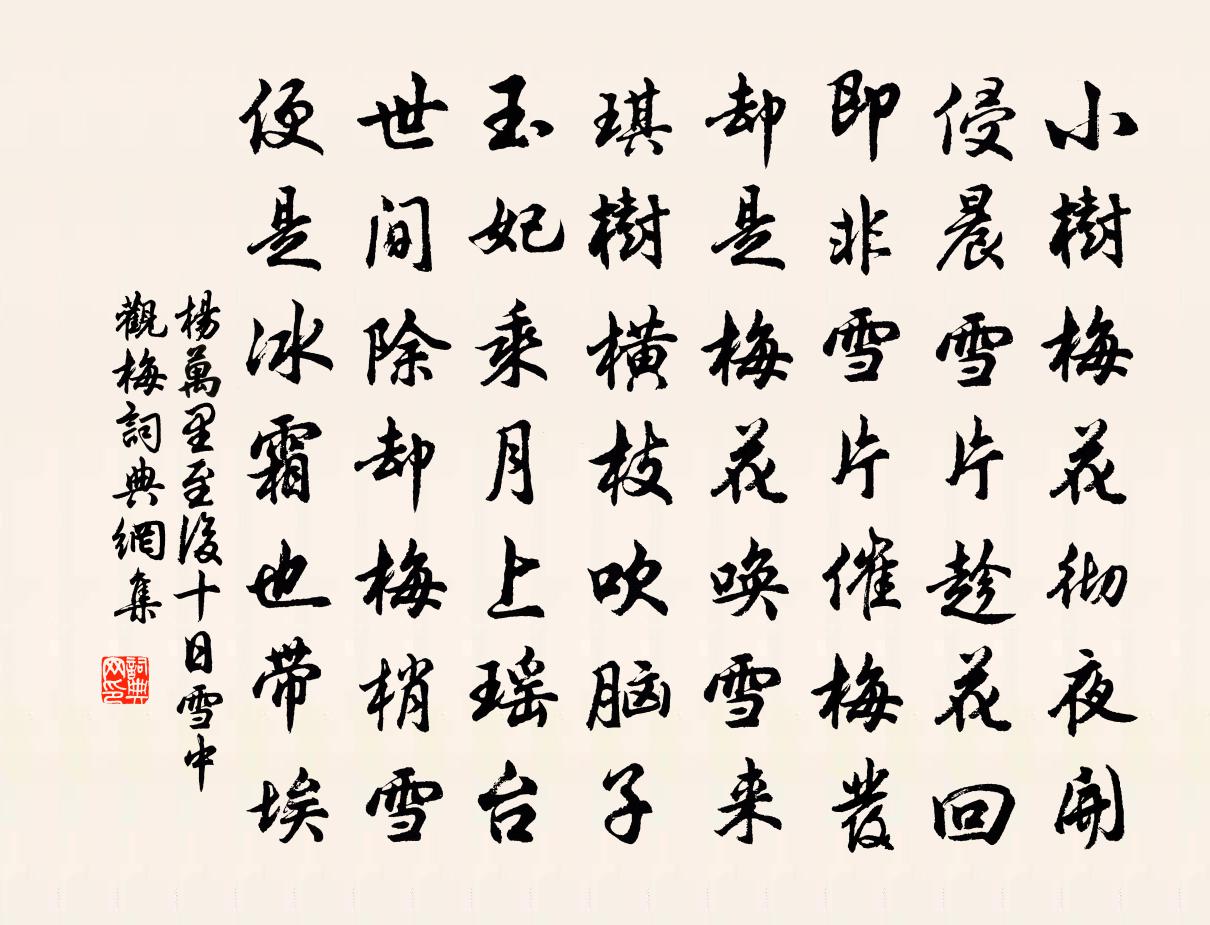 小樹梅花彻夜開
侵晨雪片趁花回
即非雪片催梅發
却是梅花唤雪来
琪樹横枝吹脑子
玉妃乘月上瑶台
世间除却梅梢雪
便是冰霜也带埃
楊萬里至後十日雪中
觀梅詞典網集
詞典网印